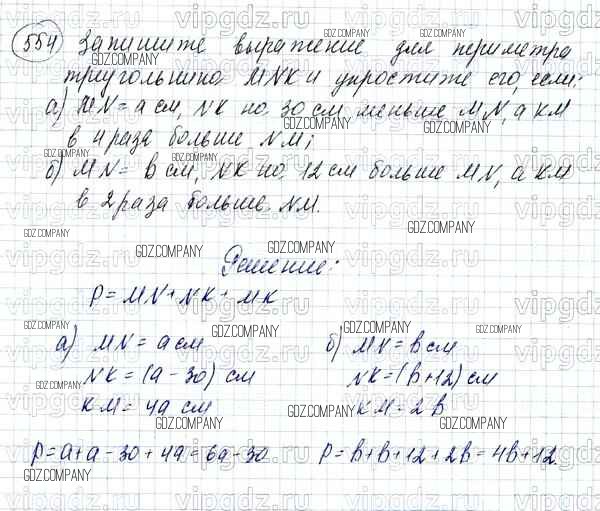 554 Запишите выражение для периметра
треугольника MNK и упростите его, если:
а) MN = a см, NK на 30 см меньше MN, а KM
в 4 раза больше NM;
б) MN = b см, NK на 12 см больше MN, а KM
в 2 раза больше NM.
Решение:
P = MN + NK + MK
а) MN = a см
NK = (a - 30) см
KM = 4a см
P = a + a - 30 + 4a = 6a - 30
б) MN = b см
NK = (b + 12) см
KM = 2b
P = b + b + 12 + 2b = 4b + 12.
vipgdz.ru
GDZ.COMPANY